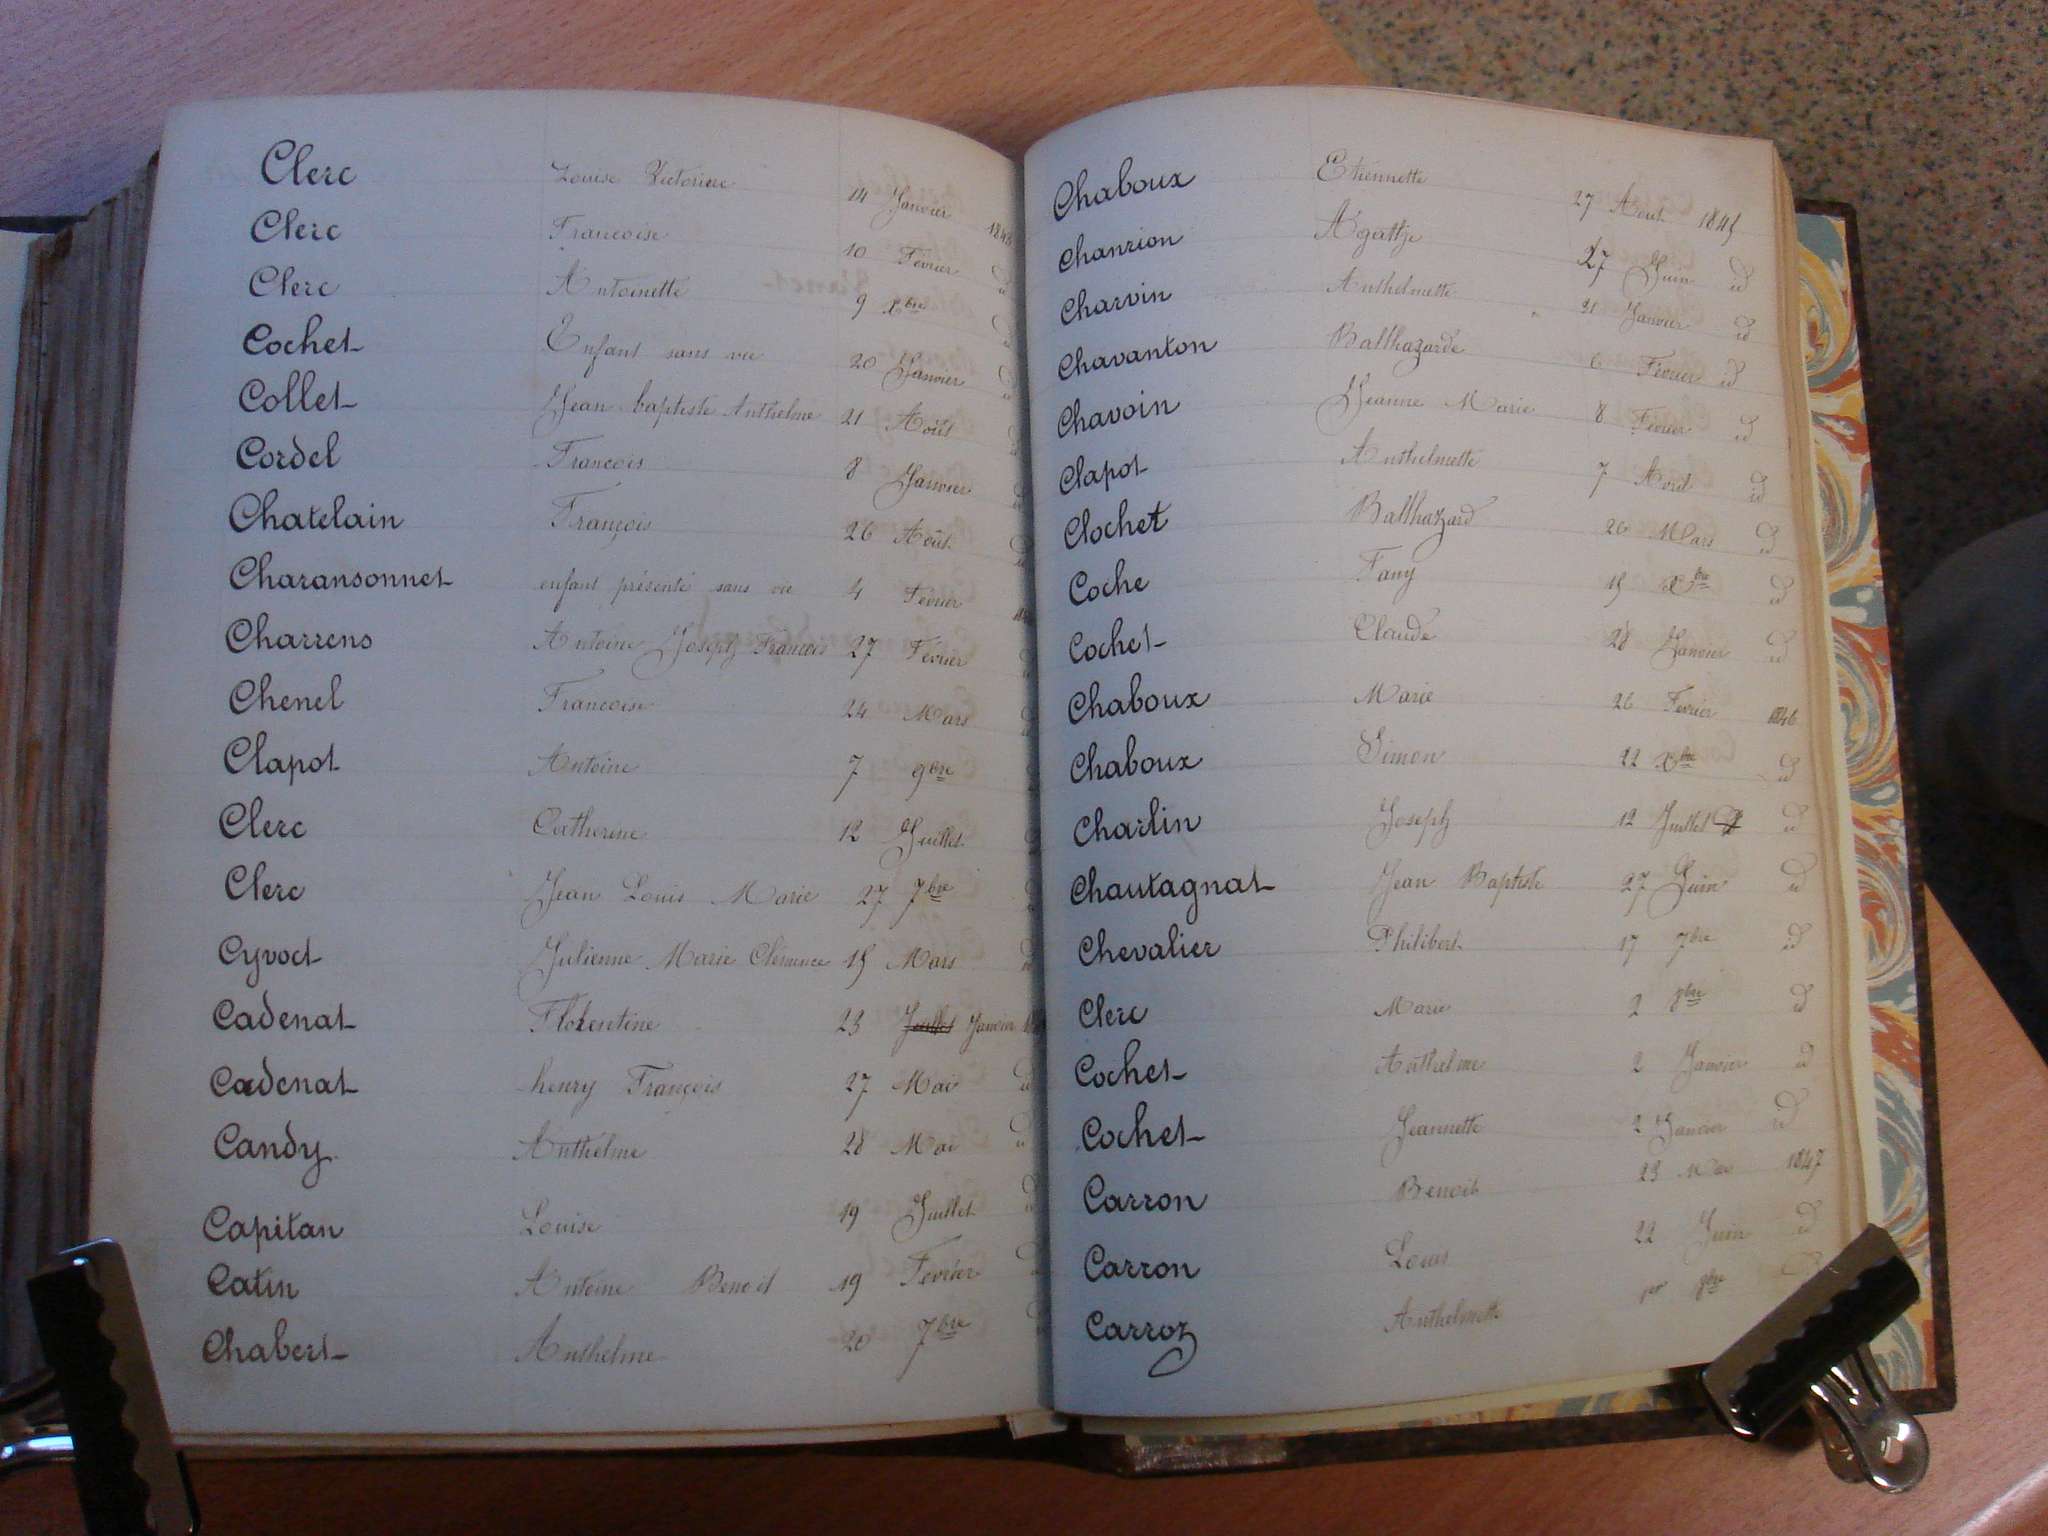 Clerc Louise Victorine 14 Janvier
Clerc Francoise 10 Fevrier id
Clerc Antoinette 9 Xbre id
Cochet Enfant sans vie 20 Janvier id
Collet Jean baptiste Anthelme 21 Août id
Cordel Francois 8 Janvier id
Chatelain François 26 Août id
Charansonnet enfant présenté sans vie 4 Fevrier
Charrens Antoine Joseph Francois 27 Fevrier id
Chenel Francoise 24 Mars id
Clapot Antoine 7 9bre
Clerc Catherine 12 Juillet
Clerc Jean Louis Marie 27 7bre
Cyvoct Julienne Marie Clémence 15 Mars id
Cadenat Florentine 23 Juillet Janvier
Cadenat henry François 27 Mai id
Candy Anthelme 28 Mai id
Capitan Louise 19 Juillet id
Catin Antoine Benoit 19 Fevrier
Chabert Anthelme 20 7bre
Chaboux Etiennette 27 Aout 1845
Chanrion Agathe 27 Juin id
Charvin Anthelmette 21 Janvier id
Chavanton Balthazarde 6 Fevrier id
Chavoin Jeanne Marie 8 Fevrier id
Clapot Anthelmette 7 Avril id
Clochet Balthazard 20 Mars id
Coche Fany 15 Xbre id
Cochet Claude 28 Janvier id
Chaboux Marie 26 Fevrier 1846
Chaboux Simon 22 Xbre id
Charlin Joseph 12 Juillet id
Chautagnat Jean Baptiste 27 Juin id
Chevalier Philibert 17 7bre id
Clerc Marie 2 8bre id
Cochet Anthelme 2 Janvier id
Cochet Jeannette 2 Janvier id
Carron Benoit 23 Mai 1847
Carron Louis 22 Juin id
Carroz Anthelmette 1er 8bre id